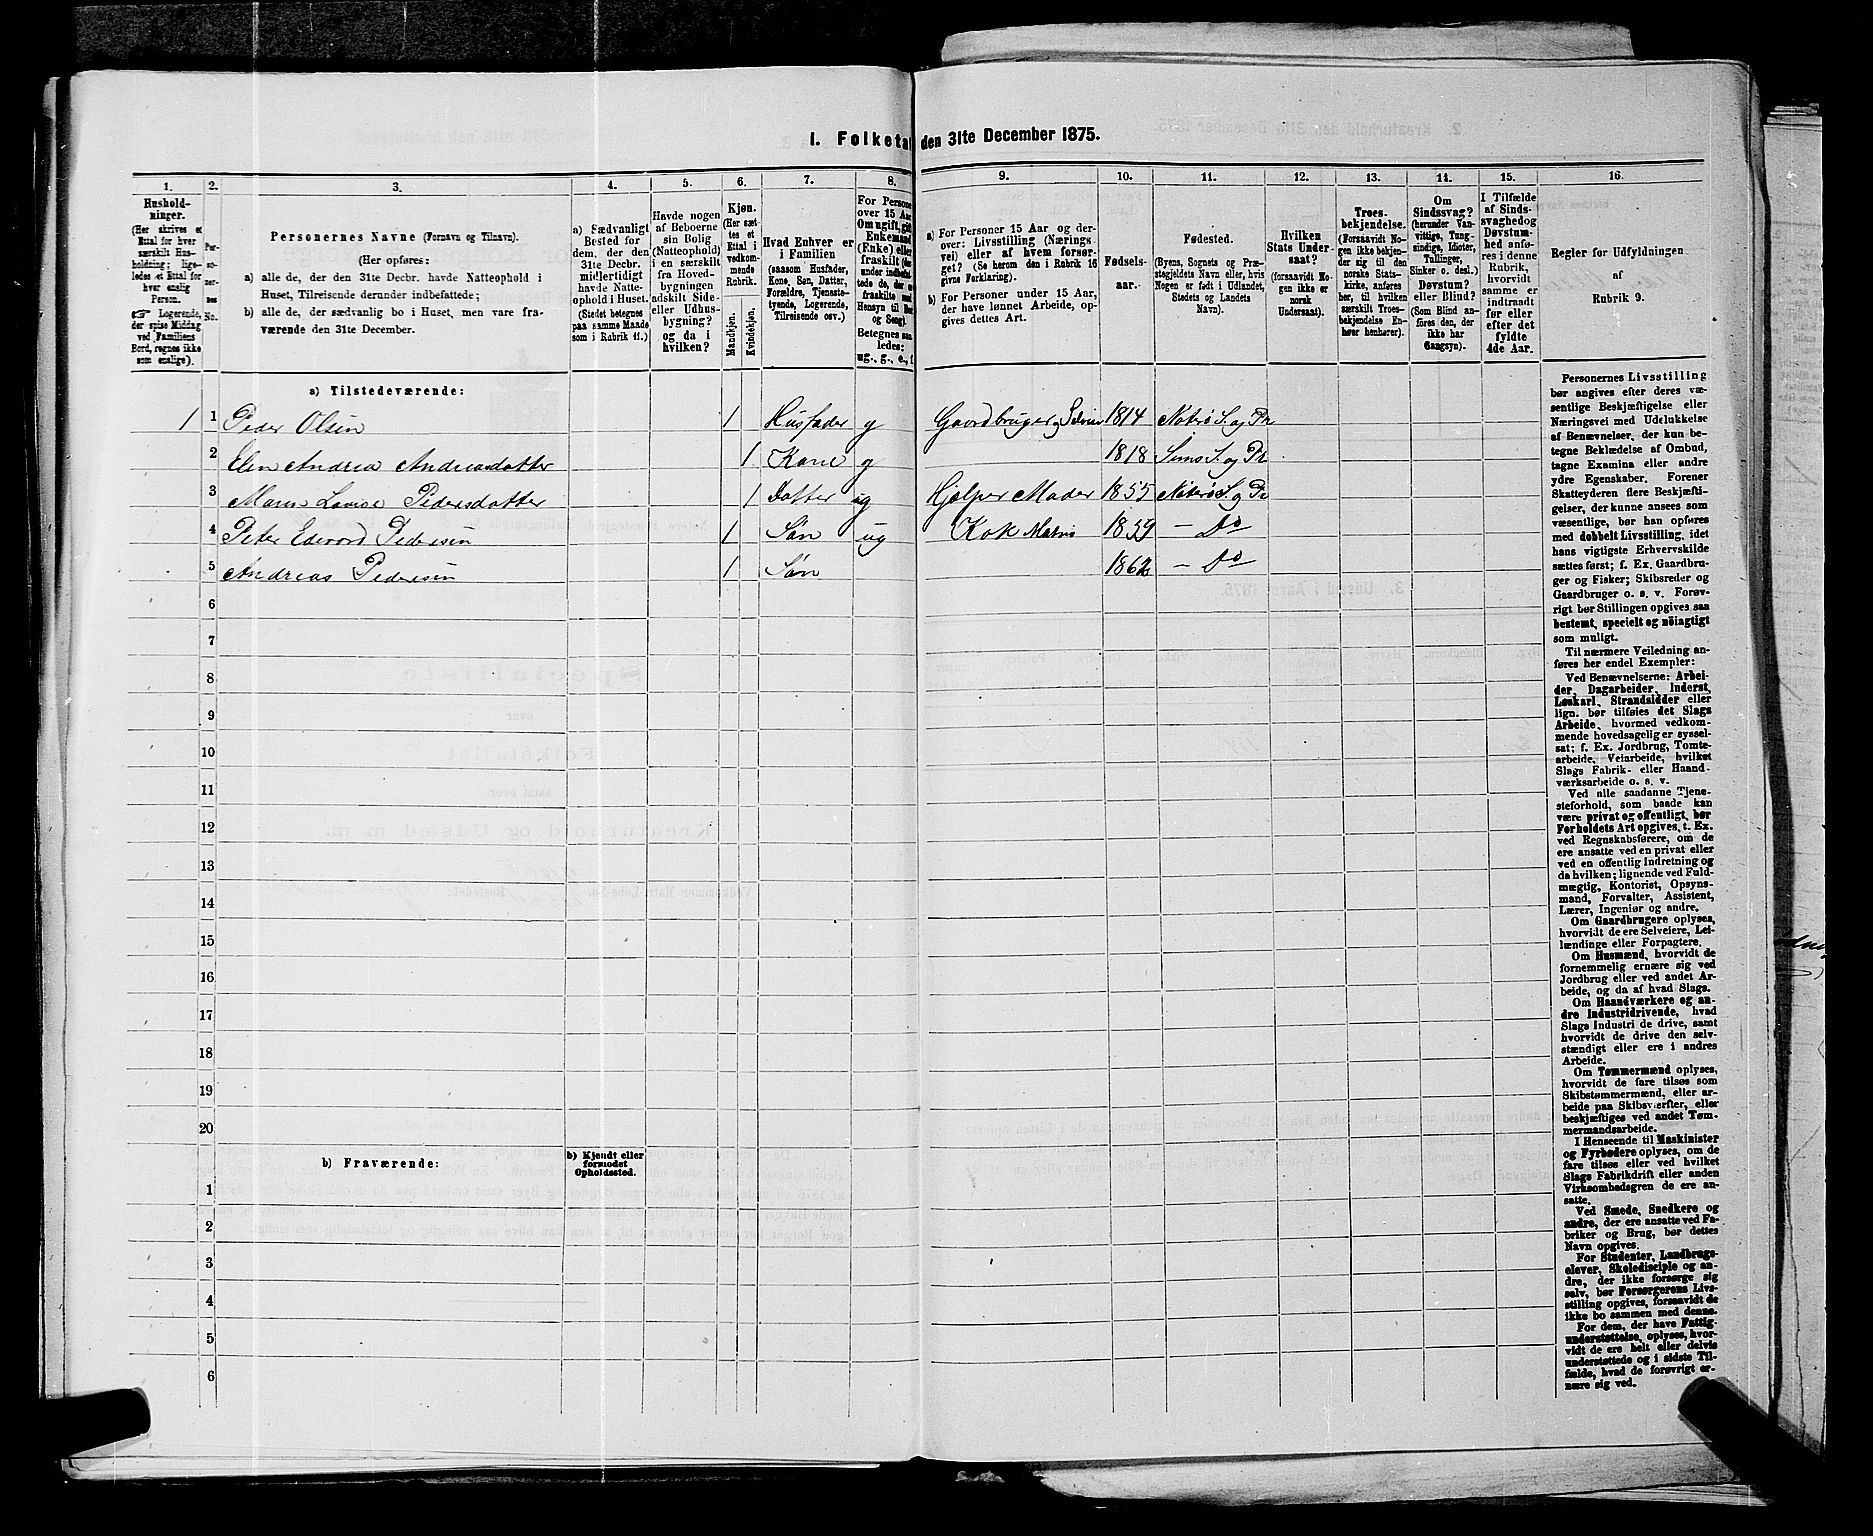 1. Folketa den 31te December 1875.
1. 2. 3. 4. 5. 6. 7. 8. 9. 10. 11. 12. 13. 14. 15. 16.
Hushold-
ninger.
(Her skrives et
Ettal for hver
særskilt Hus-
holdning; lige-
ledes et Ettal for
hver enslig
Person.
☞ Logerende,
der spise Middag
ved Familiens
Bord, regnes ikke
som enslige).
Per-
so-
ner-
nes
No.
Personernes Navne (Fornavn og Tilnavn).
(Her opføres:
a) alle de, der den 31te Decbr. havde Natteophold i
Huset, Tilreisende derunder indbefattede;
b) alle de, der sædvanlig bo i Huset, men vare fra-
værende den 31te December.
a) Sædvanligt
Bosted for
dem, der den
31te Decbr.
midlertidigt
havde Natte-
ophold i Huset.
(Stedet betegnes
paa samme Maade
som i Rubrik 11.)
Havde nogen
af Beboerne
sin Bolig
(Natteophold)
i en særskilt
fra Hoved-
bygningen
adskilt Side-
eller Udhus-
bygning?
og da i
hvilken?
Kjøn.
(Her sæt-
tes et
Ettal i
vedkom-
mende
Rubrik.
Mandkjøn.
Kvindekjøn.
Hvad Enhver er
i Familien
(saasom Husfader,
Kone, Søn, Datter,
Forældre, Tjeneste-
tyende, Logerende,
Tilreisende osv.)
For Persone
over 15 Aar
Om ugift, gift
Enkemand
(Enke) eller
fraskilt
under indbefat-
tede de, der e
fraskilte med
Hensyn til Bor
og Seng).
Betegnes saa-
ledes:
ug., g., e., f.
a) For Personer 15 Aar og der-
over: Livsstilling (Nærings-
vei) eller af hvem forsør-
get? (Se herom den i Rubrik 16
givne Forklaring).
b) For Personer under 15 Aar,
der have lønnet Arbeide, op-
gives dettes Art.
Fødsels-
aar.
Fødested.
(Byens, Sognets og Præ-
stegjeldets Navn eller, hvis
Nogen er født i Udlandet,
Stedets og Landets
Navn).
Hvilken
Stats Under-
saat?
(forsaavidt No-
gen ikke er
norsk
Undersaat).
Troes-
bekjendelse.
(Forsaavidt No-
gen ikke bekjen-
der sig til den
norske Stats-
kirke, anføres
her, til hvilken
særskilt Troes-
bekjendelse En-
hver henhører).
Om
Sindssvag?
(herunder Van-
vittige, Tung-
sindige, Idioter,
Tullinger,
Sinker o. desl.)
Døvstum?
eller Blind?
(Som Blind an-
føres den, der
ikke har
Gangsyn).
I Tilfælde
af Sinds-
svaghed og
Døvstum-
hed anfø-
res i denne
Rubrik,
hvorvidt
samme er
indtraadt
før eller
efter det
fyldte
4de Aar.
Regler for Udfyldningen
af
Rubrik 9.
a) Tilstedeværende:
1 1 Peder Olsen 1 Husfader g Gaardbruger 1814 Nøterø S. og Pr
2 Elen Andrea Andreasdatter 1 Kone g 1818 Sems S. og Pr
3 Maren Lovise Pedersdatter 1 Datter ug Hjælper Moder 1855 Nøterø S. og Pr
4 Peter Edevard Pedersen 1 Søn ug Kok Matros 1859 – Do
5 Andreas Pedersen 1 Søn 1862 – Do
6
7
8
9
10
11
12
13
14
15
16
17
18
19
20
b) Fraværende:
b) Kjendt eller
formodet
Opholdssted.
1
2
3
4
5
6
Personernes Livsstilling
bør angives efter deres væ-
sentlige Beskjæftigelse eller
Næringsvei med Udelukkelse
af Benævnelser, der kun be-
tegne Beklædelse af Ombud,
tagne Examina eller andre
ydre Egenskaber. Forener
Skatteyderen flere Beskjæfti-
gelser, der kunne ansees som
væsentlige, bør han opføres
med dobbelt Livsstilling, idet
hans vigtigste Erhvervskilde
sættes først; f. Ex. Gaardbru-
ger og Fisker; Skibsreder og
Gaardbruger o. s. v. Forøv-
rigt bør Stillingen opgives saa
bestemt, specielt og nöiagtigt
som muligt.
Til nærmere Veiledning an-
føres her endel Exempler:
Ved Benævnelserne: Arbei-
der, Dagarbeider, Inderst,
Løskarl, Strandsidder eller
lign. bør tilføies det Slags
Arbeide, hvormed vedkom-
mende hovedsagelig er syssel-
sat; f. Ex. Jordbrug, Tomte-
arbeide, Veiarbeide, hvilket
Slags Fabrik- eller Haand-
værksarbeide o. s. v.
Ved alle saadanne Tjene-
steforhold, som baade kan
være privat og offentligt, bør
Forholdets Art opgives, t. Ex.
ved Regnskabsførere, om de
ere ansatte ved en privat eller
ved en offentlig Indretning og
da hvilken; lignende ved Fuld-
mægtig, Kontorist, Opsyns-
mand, Forvalter, Assistent,
Lærer, Ingeniør og andre.
Om Gaardbrugere oplyses,
hvorvidt de ere Selveiere, Lei-
lændinge eller Forpagtere.
Om Husmænd, hvorvidt de
fornemmelig ernære sig ved
Jordbrug eller ved andet Ar-
beide, og da af hvad Slags.
Om Haandværkere og an-
dre Industridrivende, hvad
Slags Industri de drive, samt
hvorvidt de drive den selv-
stændigt eller ere i andres
Arbeide.
Om Tømmermænd oplyses,
hvorvidt de fare tilsøs som
Skibstømmermænd, eller ar-
beide paa Skibsværfter, eller
beskjæftiges ved andet Tøm-
mermandsarbeide.
I Henseende til Maskinister
og Fyrbødere oplyses, om de
fare tilsøs eller ved hvilket
Slags Fabrikdrift eller anden
Virksomhedsgren de ere an-
satte.
Ved Smede, Snedkere og
andre, der ere ansatte ved Fa-
briker og Brug, bør dettes
Navn opgives.
For Studenter, Landbrugs-
elever, Skoledisciple og an-
dre, der ikke forsørge sig
selv, bør Forsørgerens Livs-
stilling opgives, forsaavidt de
ikke bo sammen med denne.
For dem, der have Fattig-
understøttelse, oplyses, hvor-
vidt de ere helt eller delvis
understøttede og i sidste Til-
fælde, hvad de forøvrigt er-
nære sig ved.